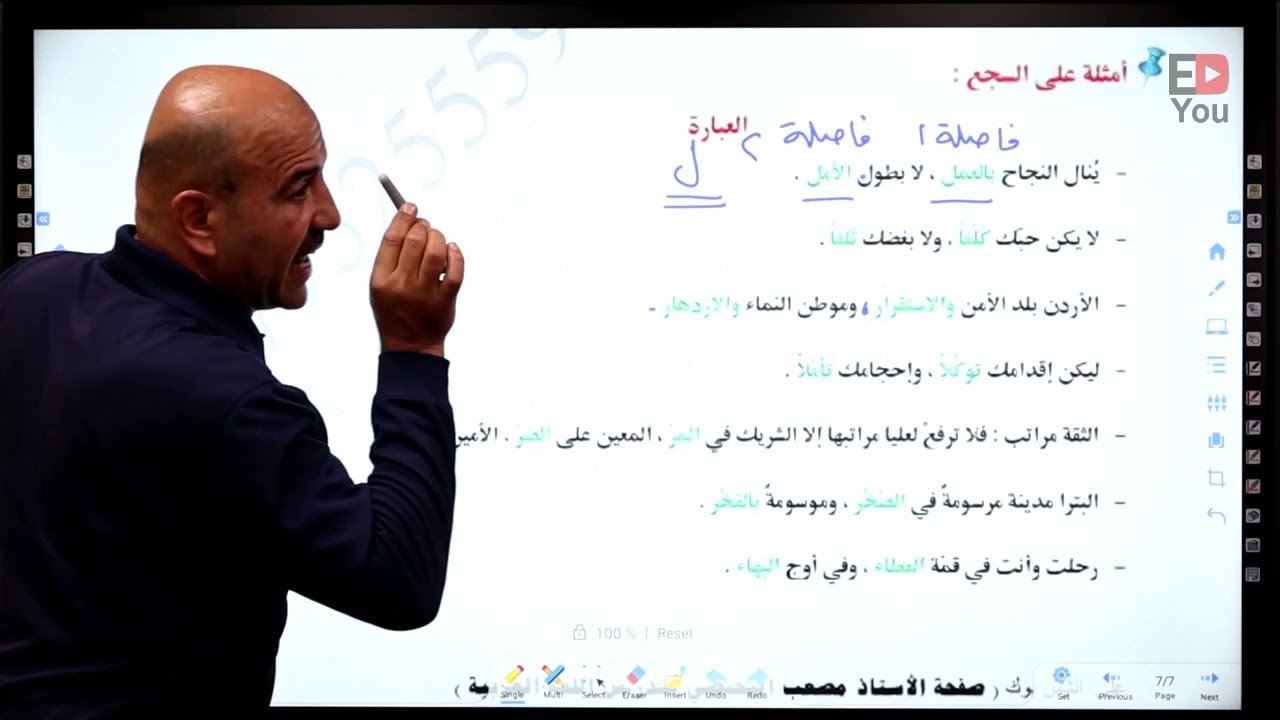 أمثلة على السجع :
ED
You
العبارة
فاصلة ١ فاصلة ٢
ل
- يُنال النجاح بالعمل ، لا بطول الأمل .
- لا يكن حبّك كلفاً ، ولا بغضك تلفاً .
- الأردن بلد الأمن والاستقرار ، وموطن النماء والازدهار .
- ليكن إقدامك توكّلاً ، وإحجامك تأمّلاً .
- الثقة مراتب : فلا ترفعْ لعليا مراتبها إلا الشريك في المرّ ، المعين على الضرّ ، الأمين
- البترا مدينة مرسومةٌ في الصّخْر ، وموسومةٌ بالفخْر .
- رحلت وأنت في قمّة العطاء ، وفي أوج البهاء .
100 % | Reset
صفحة الأستاذ مصعب
Single Multi Select Eraser Insert Undo Redo
Set Previous 7/7 Page Next